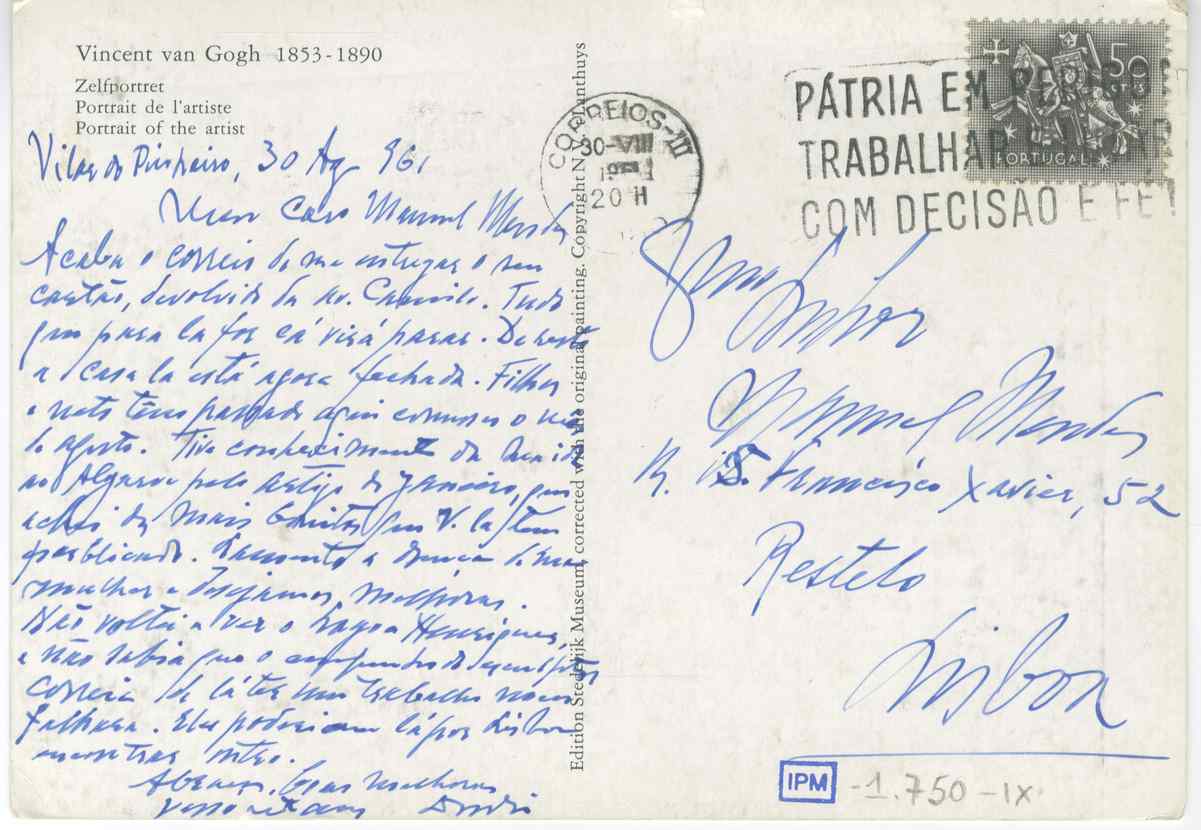 Vincent van Gogh 1853-1890
Zelfportret
Portrait de l'artiste
Portrait of the artist
Vilar do Pinheiro, 30 Ag. 961
Meu Caro Manuel Mendes
Acaba o correio de me entregar o seu
cartão, devolvido da Av. Camilo. Tudo
que para lá for cá virá parar. De resto
a casa lá está agora fechada. Filhos
e neto têm passado aqui connosco o mês
de agosto. Tive conhecimento da
ao Algarve pelo artigo do Janeiro, que
achei dos mais bonitos que V. lá tem
publicado. Lamento a doença de sua
mulher e desejamos melhoras.
Não voltei a ver o Lagoa Henriques,
e não sabia que o
correia de látex num trabalho nosso
falhara. Ele poderiam lá por Lisboa
encontrar outro.
Abraços, boas melhoras
Edition Stedelijk Museum, corrected with the original painting. Copyright N.V. Lanthuys
CORREIOS-III
30-VIII
20 H
PÁTRIA EM
TRABALHAR
COM DECISÃO E FÉ!
50
PORTUGAL
Senhor
Manuel Mendes
R. S. Francisco Xavier, 52
Restelo
Lisboa
IPM
-1.750-IX